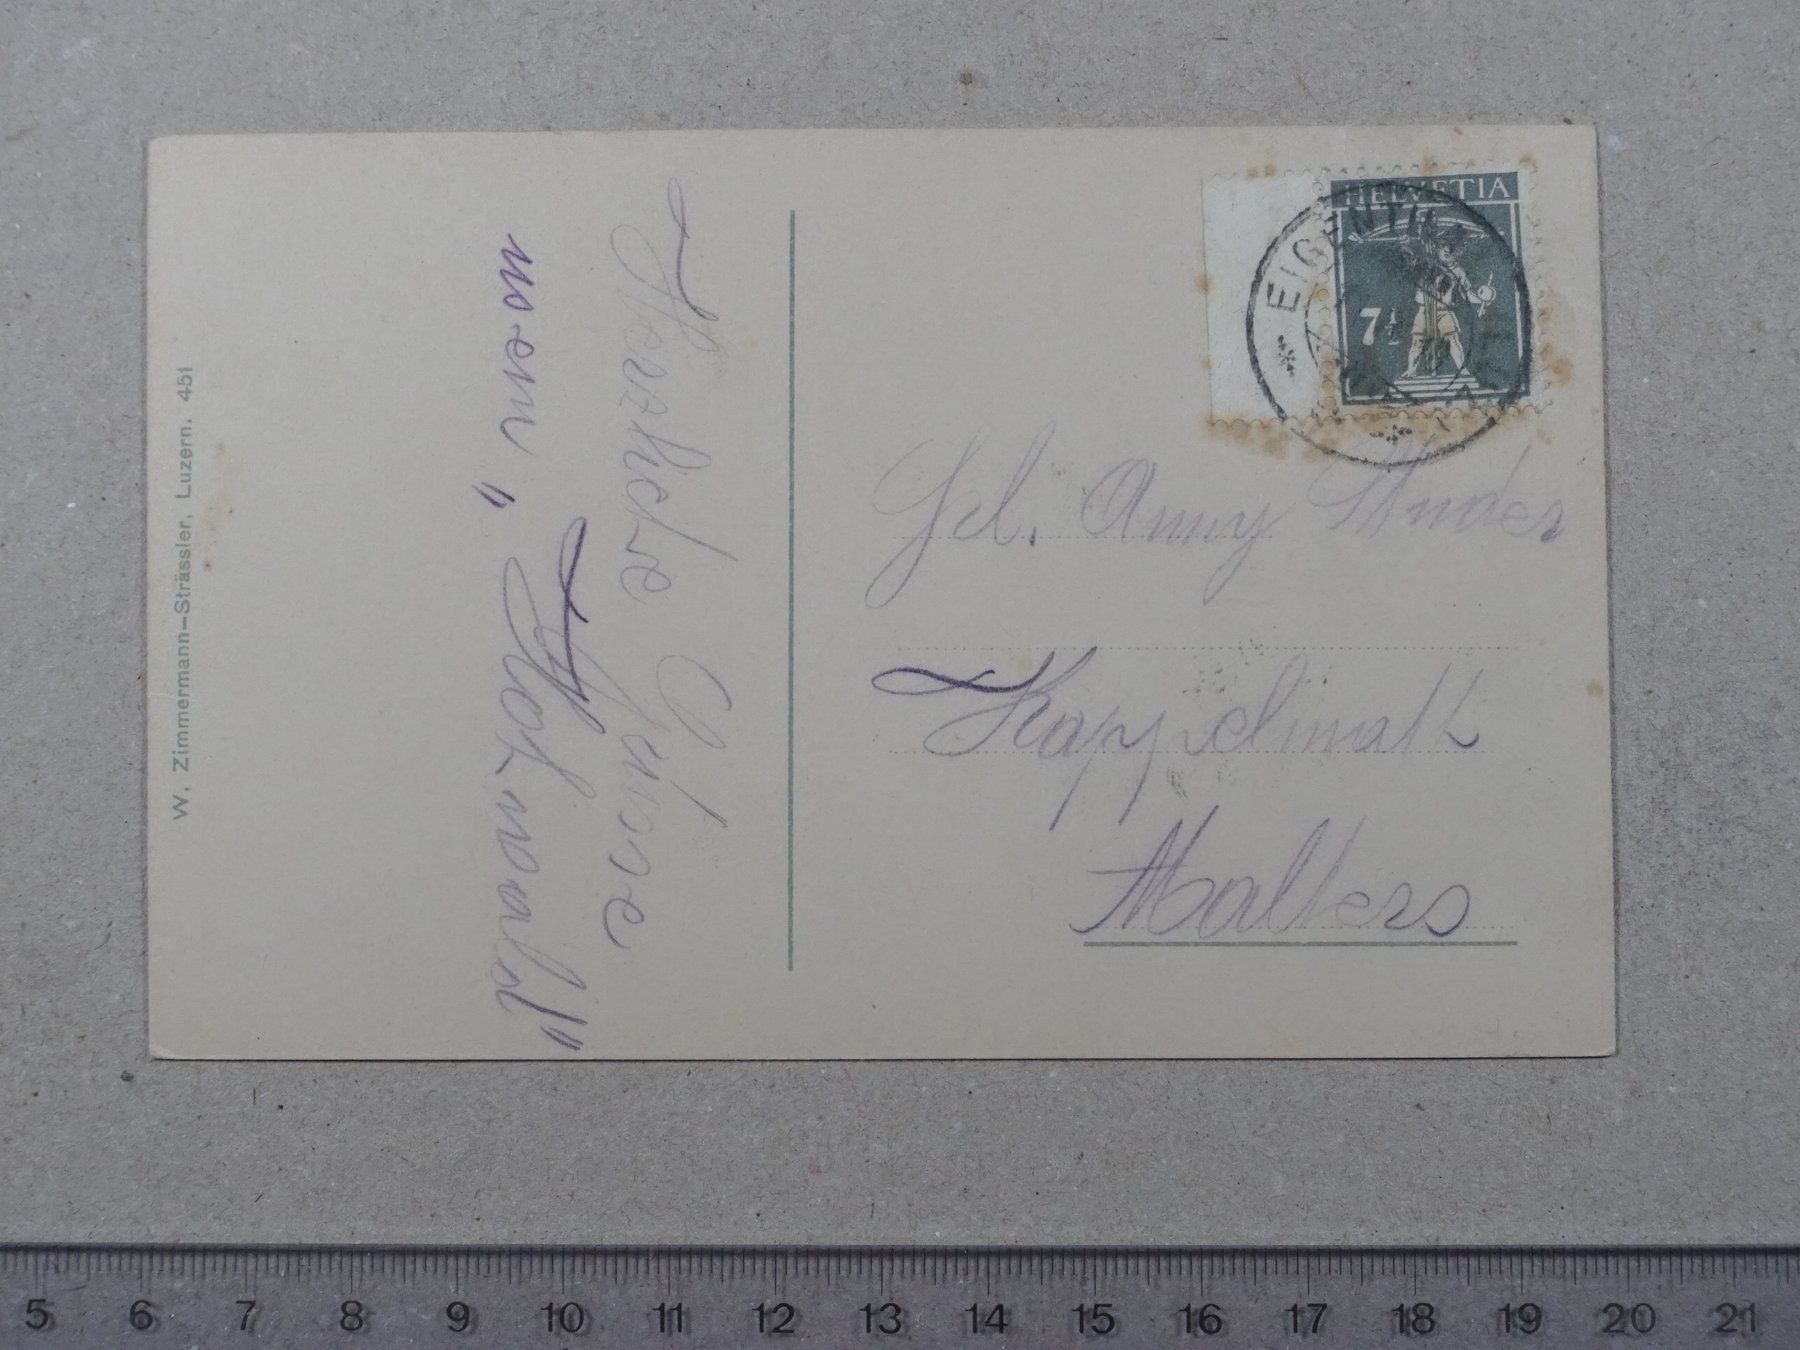 W. Zimmermann-Strässler, Luzern. 451
Herzliche Grüsse
vom „Hochwald"
HELVETIA
7½
EIGENTHAL
Frl. Anny Studer
Kappelmatt
Malters
5 6 7 8 9 10 11 12 13 14 15 16 17 18 19 20 21